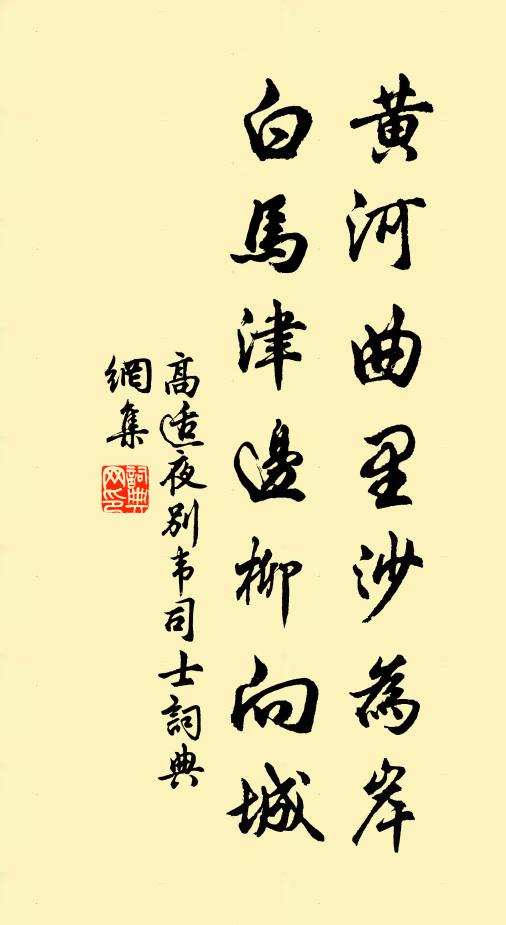 黄河曲里沙為岸
白馬津邊柳向城
高适夜别韦司士詞典
網集
詞典網印